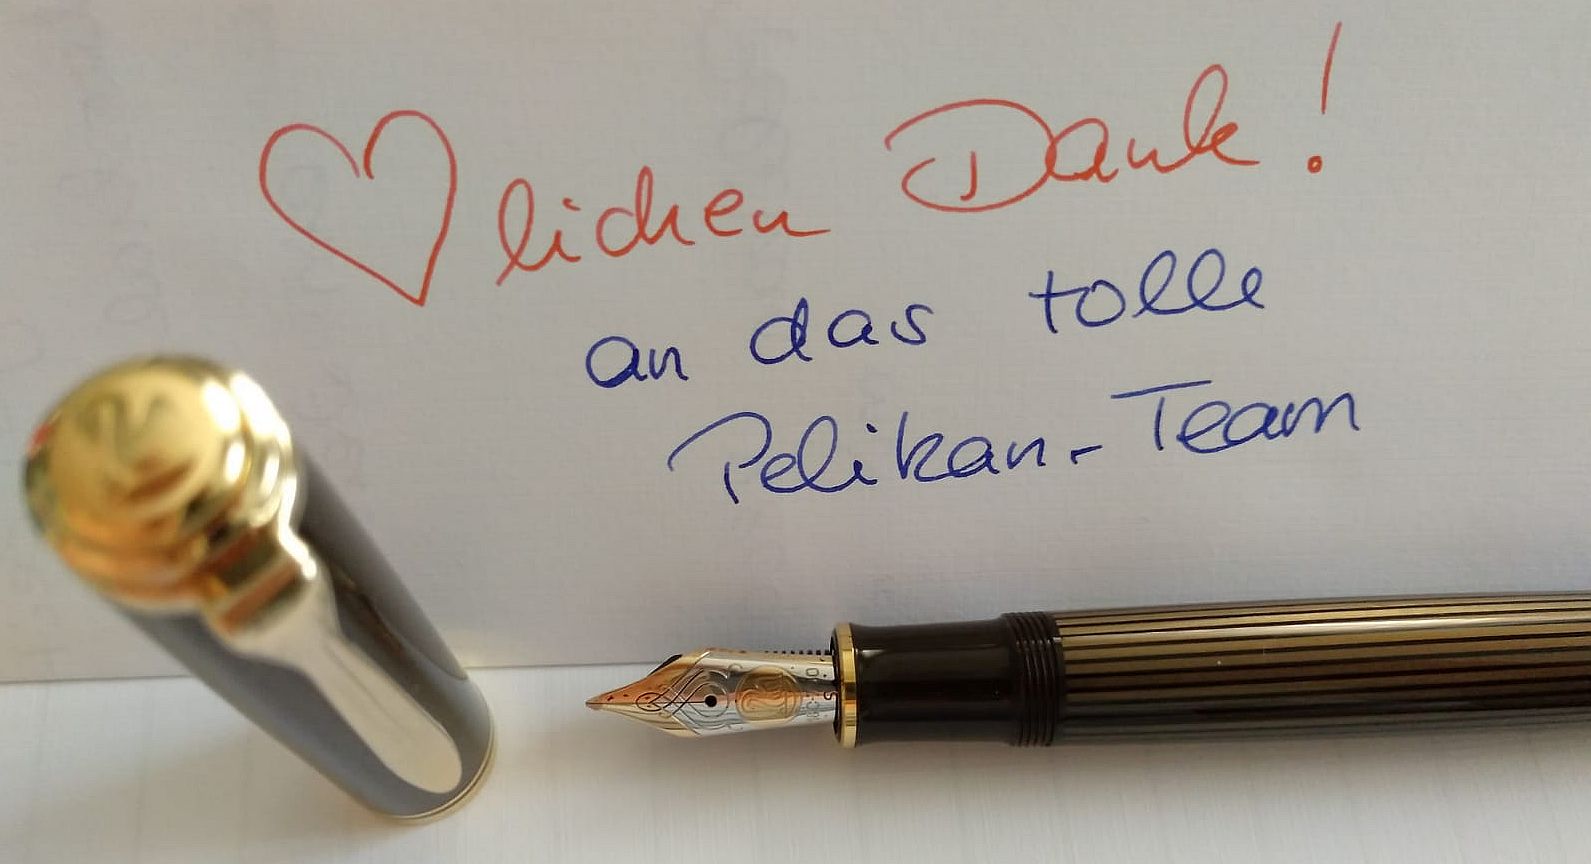 ♡lichen Dank!
an das tolle
Pelikan-Team